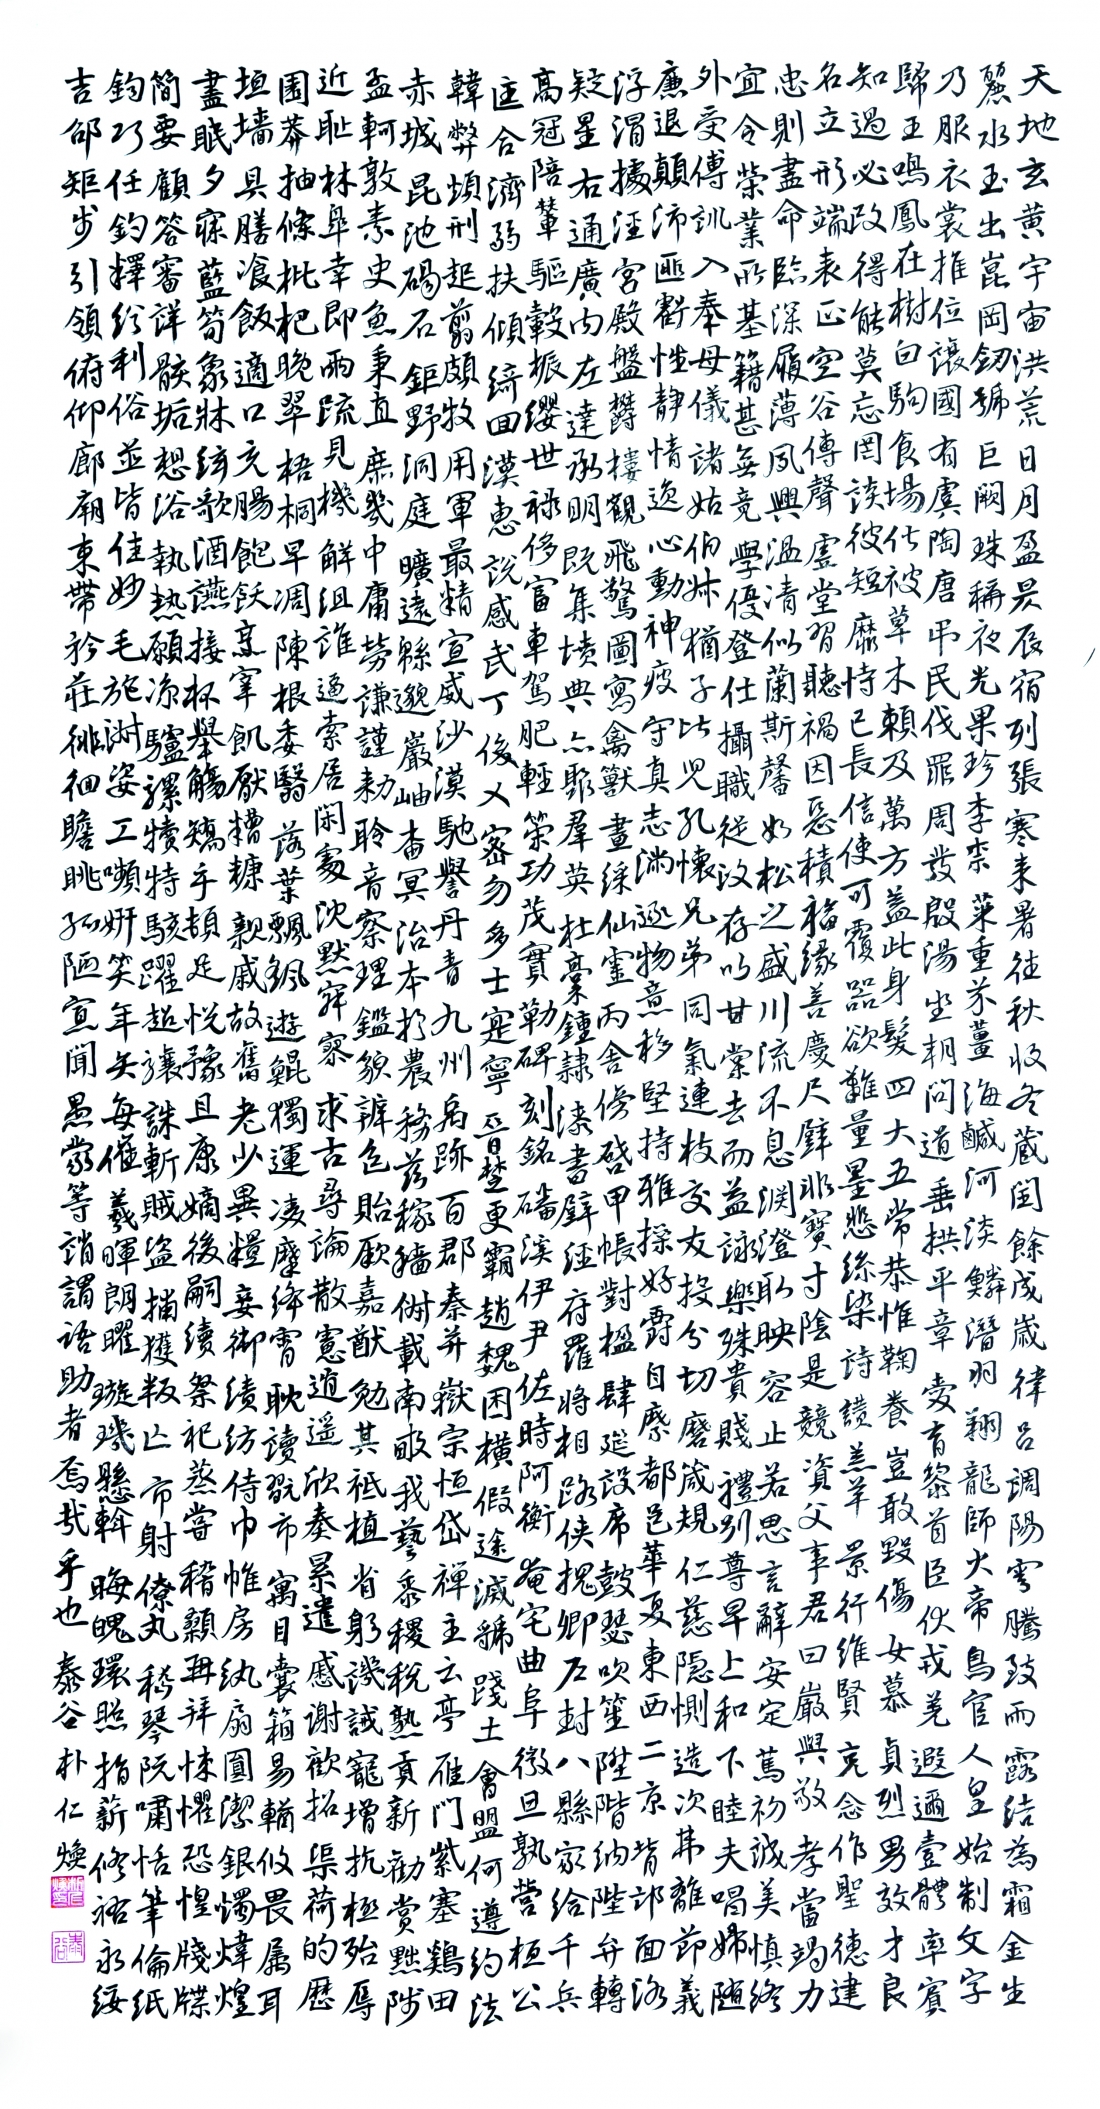 天地玄黃宇宙洪荒日月盈昃辰宿列張寒來暑往秋收冬藏閏餘成歲律呂調陽雲騰致雨露結為霜金生
麗水玉出崑岡劒號巨闕珠稱夜光果珍李柰菜重芥薑海鹹河淡鱗潛羽翔龍師火帝鳥官人皇始制文字
乃服衣裳推位讓國有虞陶唐弔民伐罪周發殷湯坐朝問道垂拱平章愛育黎首臣伏戎羌遐邇壹體率賓
歸王鳴鳳在樹白駒食場化被草木賴及萬方蓋此身髮四大五常恭惟鞠養豈敢毀傷女慕貞烈男效才良
知過必改得能莫忘罔談彼短靡恃己長信使可覆器欲難量墨悲絲染詩讚羔羊景行維賢克念作聖德建
名立形端表正空谷傳聲虛堂習聽禍因惡積福緣善慶尺璧非寶寸陰是競資父事君曰嚴與敬孝當竭力
忠則盡命臨深履薄夙興溫清似蘭斯馨如松之盛川流不息淵澄取映容止若思言辭安定篤初誠美慎終
宜令榮業所基籍甚無竟學優登仕攝職從政存以甘棠去而益詠樂殊貴賤禮別尊卑上和下睦夫唱婦隨
外受傅訓入奉母儀諸姑伯叔猶子比兒孔懷兄弟同氣連枝交友投分切磨箴規仁慈隱惻造次弗離節義
廉退顛沛匪虧性靜情逸心動神疲守真志滿逐物意移堅持雅操好爵自縻都邑華夏東西二京背邙面洛
浮渭據涇宮殿盤鬱樓觀飛驚圖寫禽獸畫綵仙靈丙舍傍啓甲帳對楹肆筵設席鼓瑟吹笙陞階納陛弁轉
疑星右通廣內左達承明既集墳典亦聚羣英杜稾鍾隸漆書壁經府羅將相路俠槐卿戶封八縣家給千兵
高冠陪輦驅轂振纓世祿侈富車駕肥輕策功茂實勒碑刻銘磻溪伊尹佐時阿衡奄宅曲阜微旦孰營桓公
匡合濟弱扶傾綺回漢惠說感武丁俊乂密勿多士寔寧晉楚更霸趙魏困橫假途滅虢踐土會盟何遵約法
韓弊煩刑起翦頗牧用軍最精宣威沙漠馳譽丹青九州禹跡百郡秦并嶽宗恒岱禪主云亭雁門紫塞鷄田
赤城昆池碣石鉅野洞庭曠遠緜邈巖岫杳冥治本於農務茲稼穡俶載南畝我藝黍稷稅熟貢新勸賞黜陟
孟軻敦素史魚秉直庶幾中庸勞謙謹勅聆音察理鑑貌辨色貽厥嘉猷勉其祗植省躬譏誡寵增抗極殆辱
近恥林皐幸即兩疏見機解組誰逼索居閑處沈默寂寥求古尋論散慮逍遙欣奏累遣慼謝歡招渠荷的歷
園莽抽條枇杷晚翠梧桐早凋陳根委翳落葉飄颻遊鯤獨運凌摩絳霄耽讀翫市寓目囊箱易輶攸畏屬耳
垣墻具膳飡飯適口充腸飽飫烹宰飢厭糟糠親戚故舊老少異糧妾御績紡侍巾帷房紈扇圓潔銀燭煒煌
晝眠夕寐藍筍象牀絃歌酒讌接杯擧觴矯手頓足悅豫且康嫡後嗣續祭祀蒸嘗稽顙再拜悚懼恐惶牋牒
簡要顧答審詳骸垢想浴執熱願凉驢騾犢特駭躍超驤誅斬賊盜捕獲叛亡布射僚丸嵇琴阮嘯恬筆倫紙
鈞巧任釣釋紛利俗並皆佳妙毛施淑姿工嚬姸笑年矢每催羲暉朗曜璇璣懸斡晦魄環照指薪修祐永綏
吉邵矩步引領俯仰廊廟束帶矜莊徘徊瞻眺孤陋寡聞愚蒙等誚謂語助者焉哉乎也泰谷朴仁煥